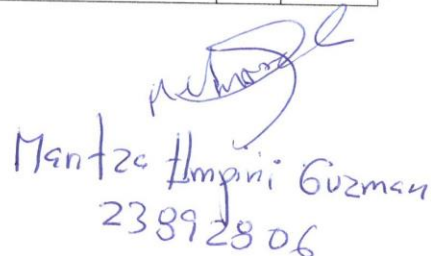 Maritza Umpiri Guzman
23892806